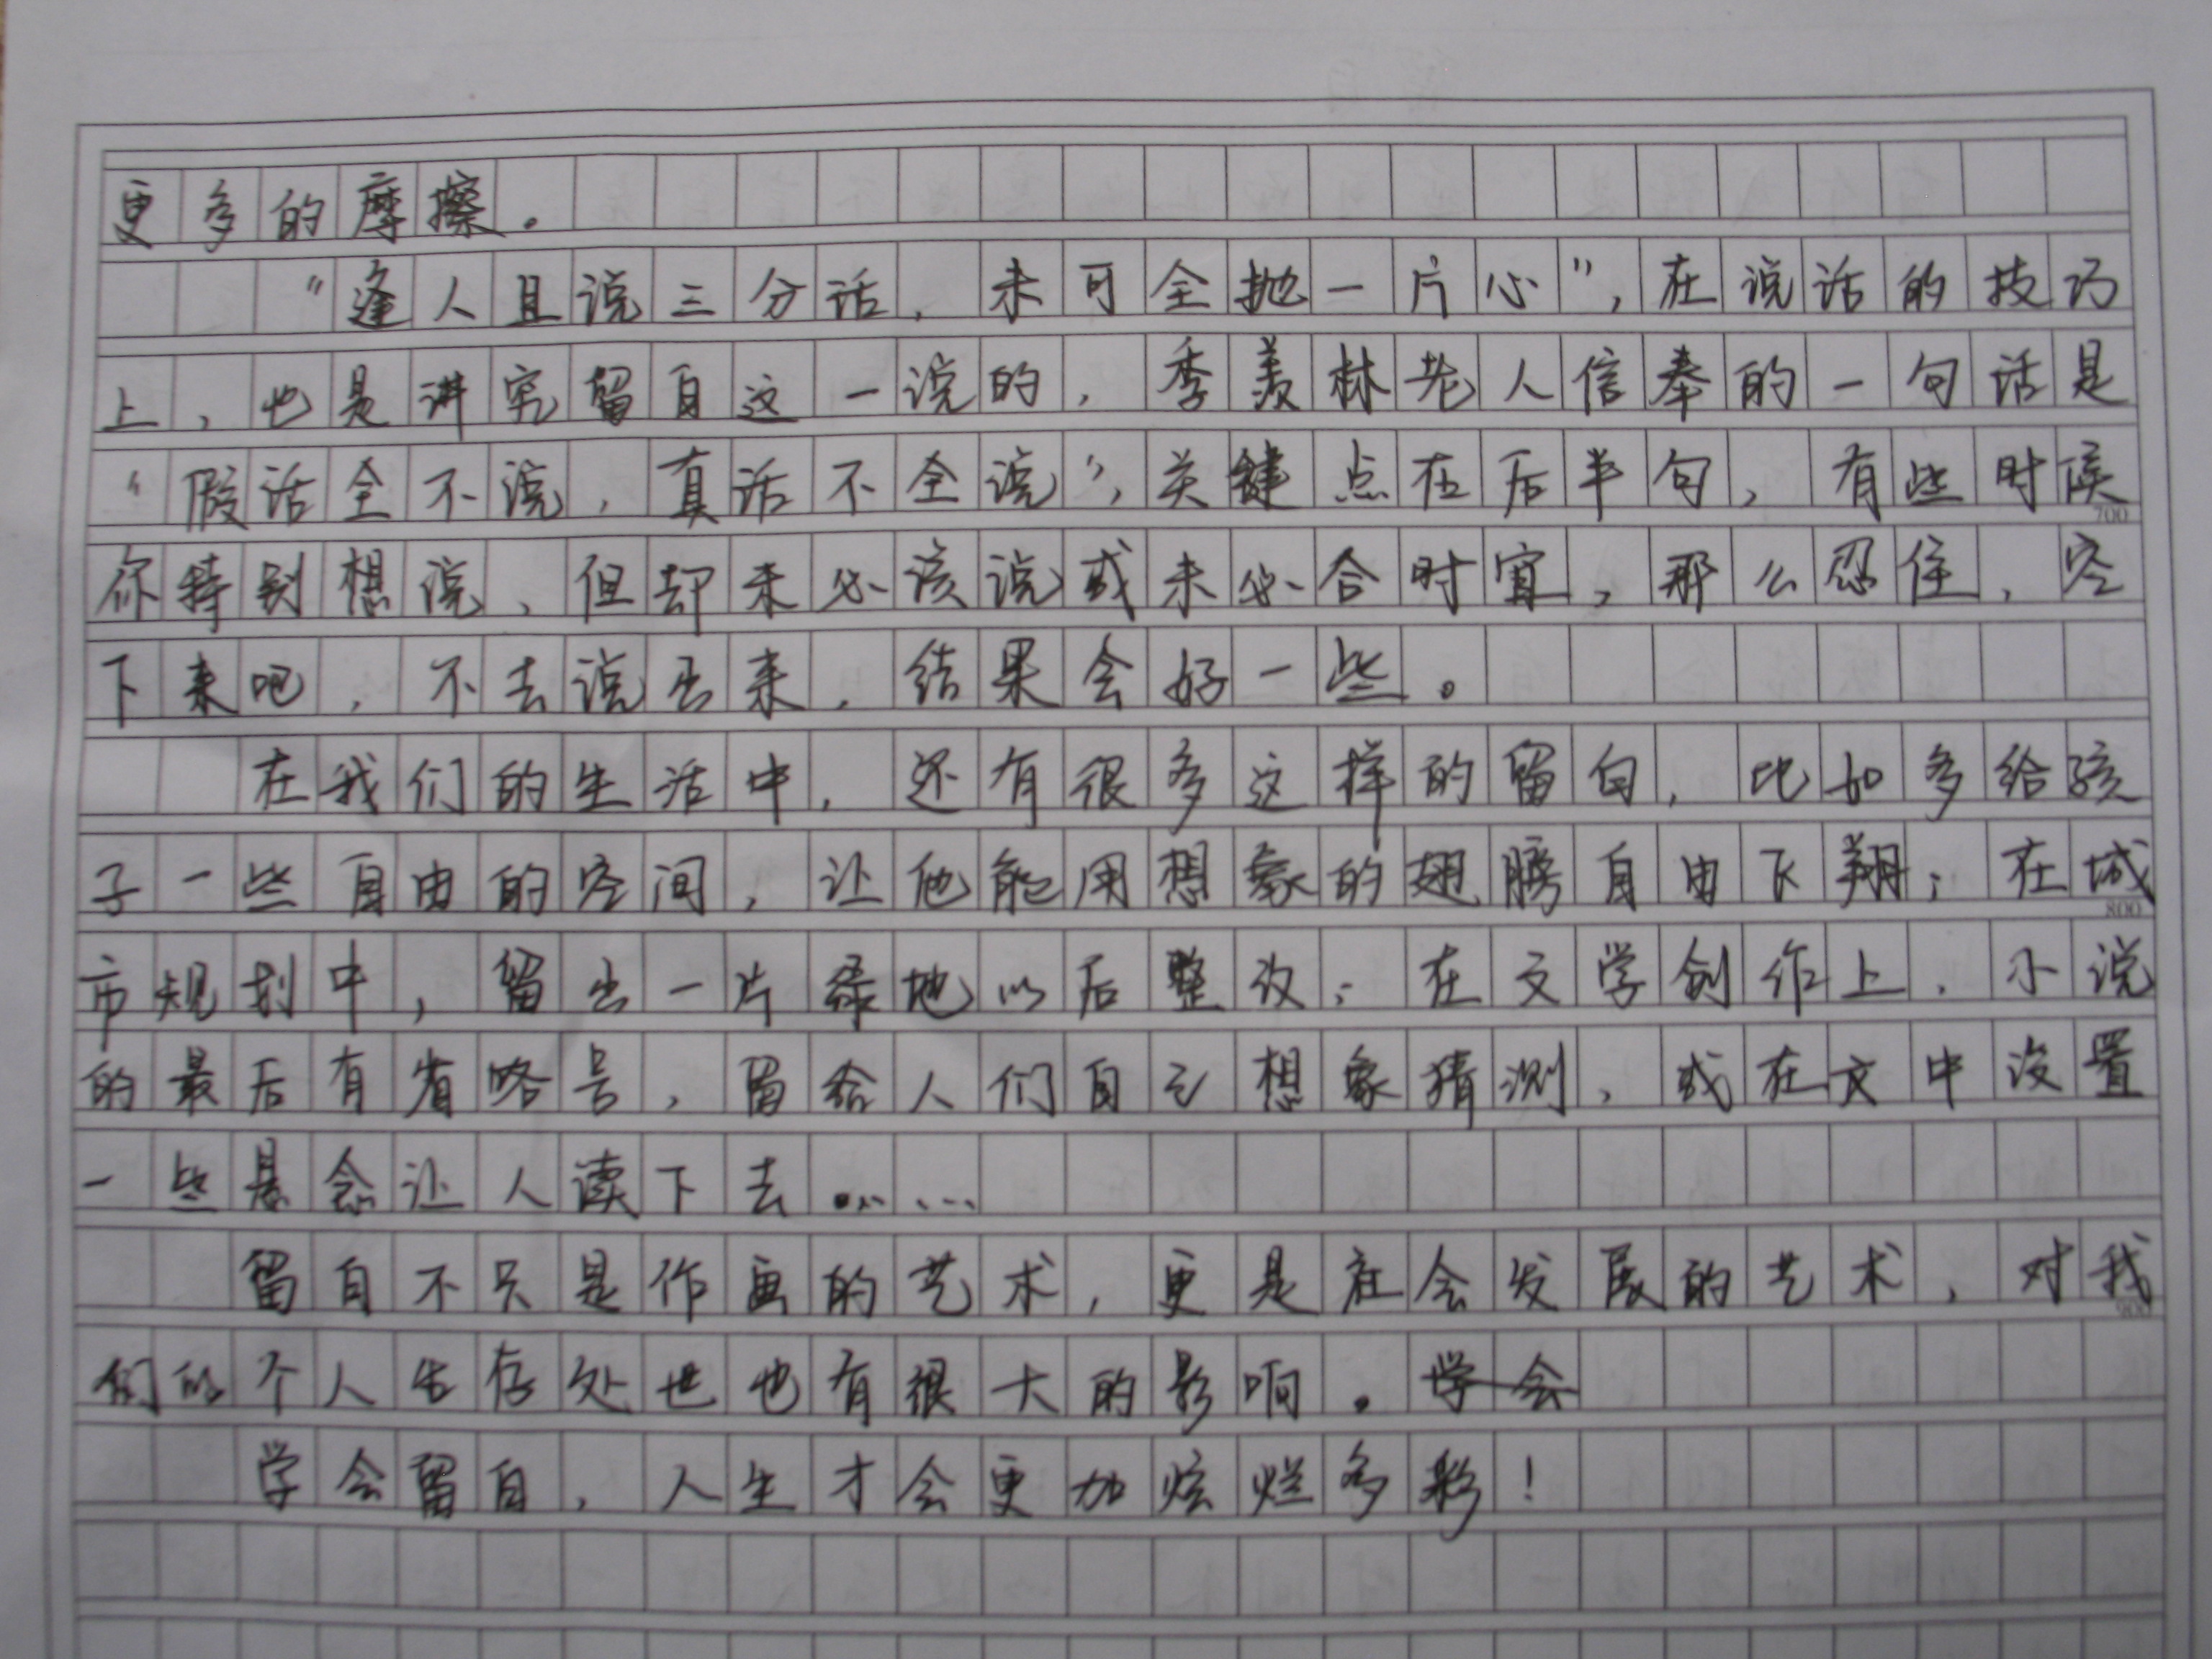 更多的摩擦。
“逢人且说三分话，未可全抛一片心”，在说话的技巧
上，也是讲究留白这一说的，季羡林老人信奉的一句话是
“假话全不说，真话不全说”，关键点在后半句，有些时候
700
你特别想说，但却未必该说或未必合时宜，那么忍住，空
下来吧，不去说出来，结果会好一些。
在我们的生活中，还有很多这样的留白，比如多给孩
子一些自由的空间，让他能用想象的翅膀自由飞翔；在城
800
市规划中，留出一片绿地以后整改；在文学创作上，小说
的最后有省略号，留给人们自己想象猜测，或在文中设置
一些悬念让人读下去……
留白不只是作画的艺术，更是社会发展的艺术，对我
900
们的个人生存处世也有很大的影响。学会
学会留白，人生才会更加炫烂多彩！